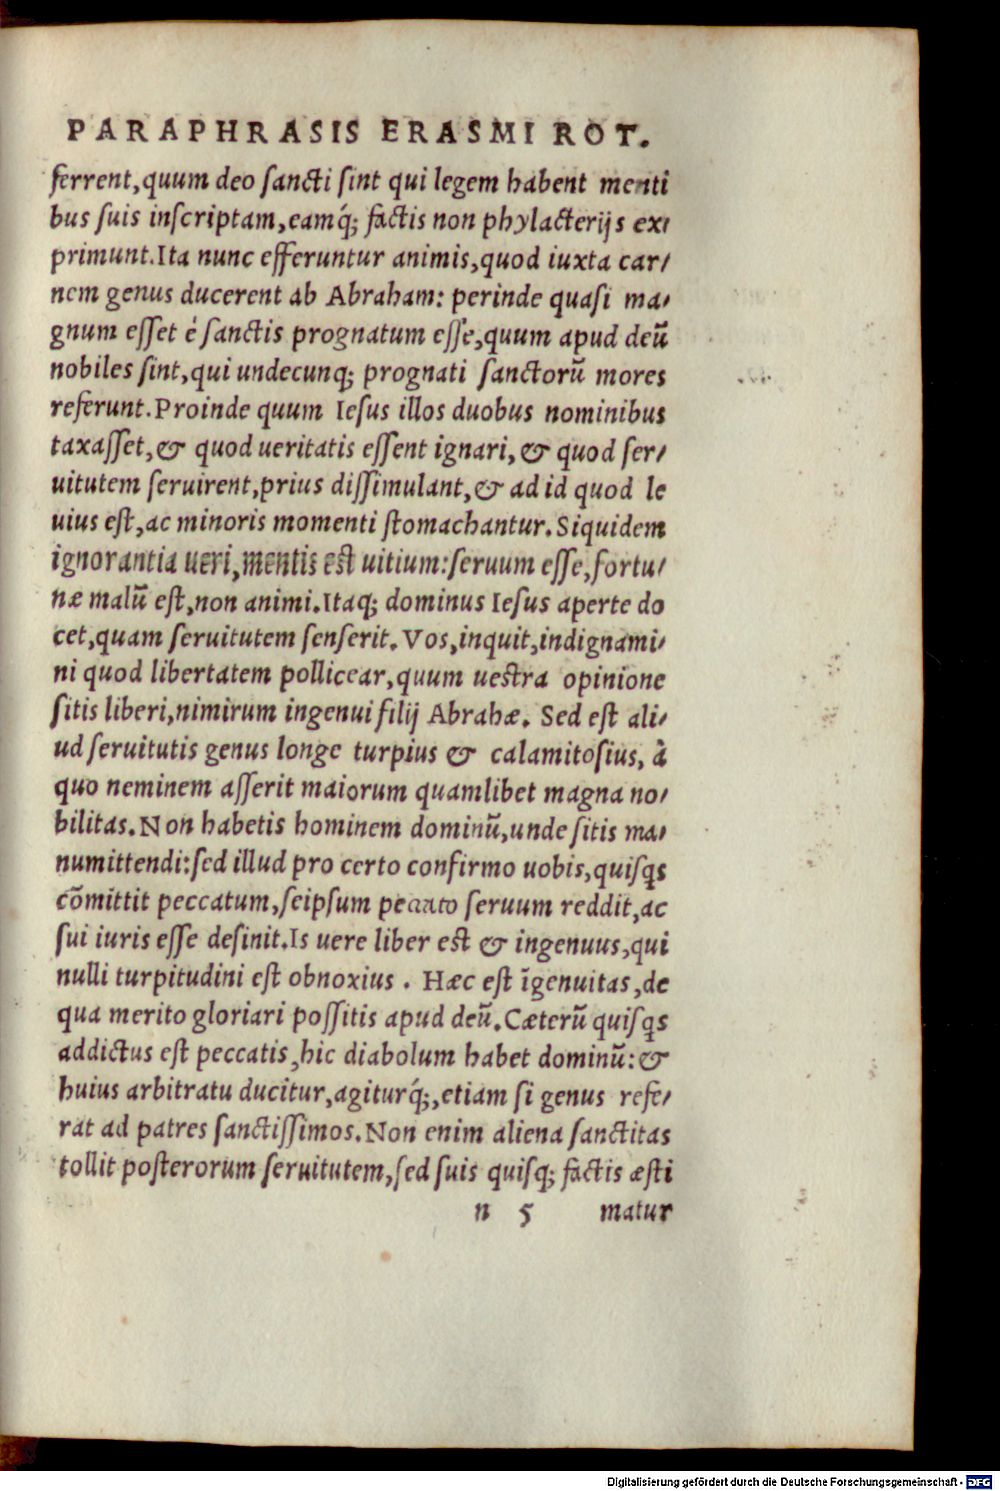 PARAPHRASIS ERASMI ROT.
ferrent,quum deo ſancti ſint qui legem habent menti
bus ſuis inſcriptam,eamq́; factis non phylacterijs ex⸗
primunt.Ita nunc efferuntur animis,quod iuxta car⸗
nem genus ducerent ab Abraham: perinde quaſi ma⸗
gnum eſſet è ſanctis prognatum eſſe,quum apud deũ
nobiles ſint,qui undecunq; prognati ſanctorũ mores
referunt.Proinde quum Ieſus illos duobus nominibus
taxaſſet,& quod ueritatis eſſent ignari,& quod ſer⸗
uitutem ſeruirent,prius diſſimulant,& ad id quod le
uius eſt,ac minoris momenti ſtomachantur.Siquidem
ignorantia ueri,mentis est uitium:ſeruum eſſe,fortu⸗
næ malũ eſt,non animi.Itaq; dominus Ieſus aperte do
cet,quam ſeruitutem ſenſerit.Vos,inquit,indignami⸗
ni quod libertatem pollicear,quum uestra opinione
ſitis liberi,nimirum ingenui filij Abrahæ. Sed eſt ali⸗
ud ſeruitutis genus longe turpius & calamitoſius, à
quo neminem aſſerit maiorum quamlibet magna no⸗
bilitas.Non habetis hominem dominũ,unde ſitis ma⸗
numittendi:ſed illud pro certo confirmo uobis,quiſqs
cõmittit peccatum,ſeipſum peccato ſeruum reddit,ac
ſui iuris eſſe deſinit.Is uere liber est & ingenuus,qui
nulli turpitudini eſt obnoxius . Hæc eſt ĩgenuitas,de
qua merito gloriari poſſitis apud deũ.Cæterũ quiſqs
addictus eſt peccatis,hic diabolum habet dominũ:&
huius arbitratu ducitur,agiturq́;,etiam ſi genus refe⸗
rat ad patres ſanctiſſimos.Non enim aliena ſanctitas
tollit poſterorum ſeruitutem,ſed ſuis quiſq; factis æſti
n 5 matur
Digitalisierung gefördert durch die Deutsche Forschungsgemeinschaft - DFG